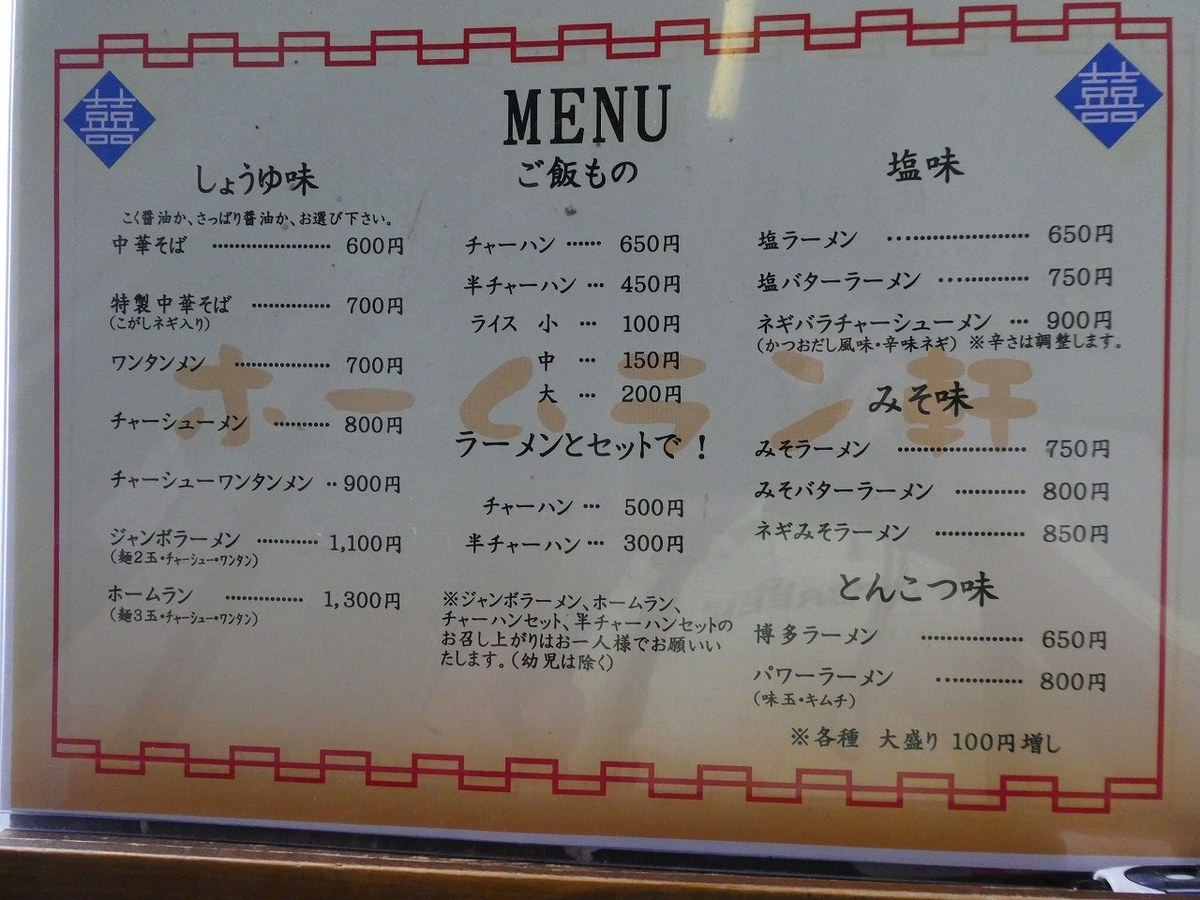 MENU
しょうゆ味
こく醤油か、さっぱり醤油か、お選び下さい。
中華そば ………………… 600円
特製中華そば ………… 700円
(こがしネギ入り)
ワンタンメン ………… 700円
チャーシューメン ……… 800円
チャーシューワンタンメン ‥900円
ジャンボラーメン ……… 1,100円
(麺2玉・チャーシュー・ワンタン)
ホームラン ………… 1,300円
(麺3玉・チャーシュー・ワンタン)
ご飯もの
チャーハン …… 650円
半チャーハン … 450円
ライス 小 … 100円
中 … 150円
大 … 200円
ラーメンとセットで!
チャーハン … 500円
半チャーハン … 300円
※ジャンボラーメン、ホームラン、
チャーハンセット、半チャーハンセットの
お召し上がりはお一人様でお願いい
たします。(幼児は除く)
塩味
塩ラーメン ………………… 650円
塩バターラーメン ………… 750円
ネギバラチャーシューメン … 900円
(かつおだし風味・辛味ネギ) ※辛さは調整します。
みそ味
みそラーメン ………………… 750円
みそバターラーメン ……… 800円
ネギみそラーメン ………… 850円
とんこつ味
博多ラーメン …………… 650円
パワーラーメン ………… 800円
(味玉・キムチ)
※各種 大盛り 100円増し
ホームラン軒
囍
囍